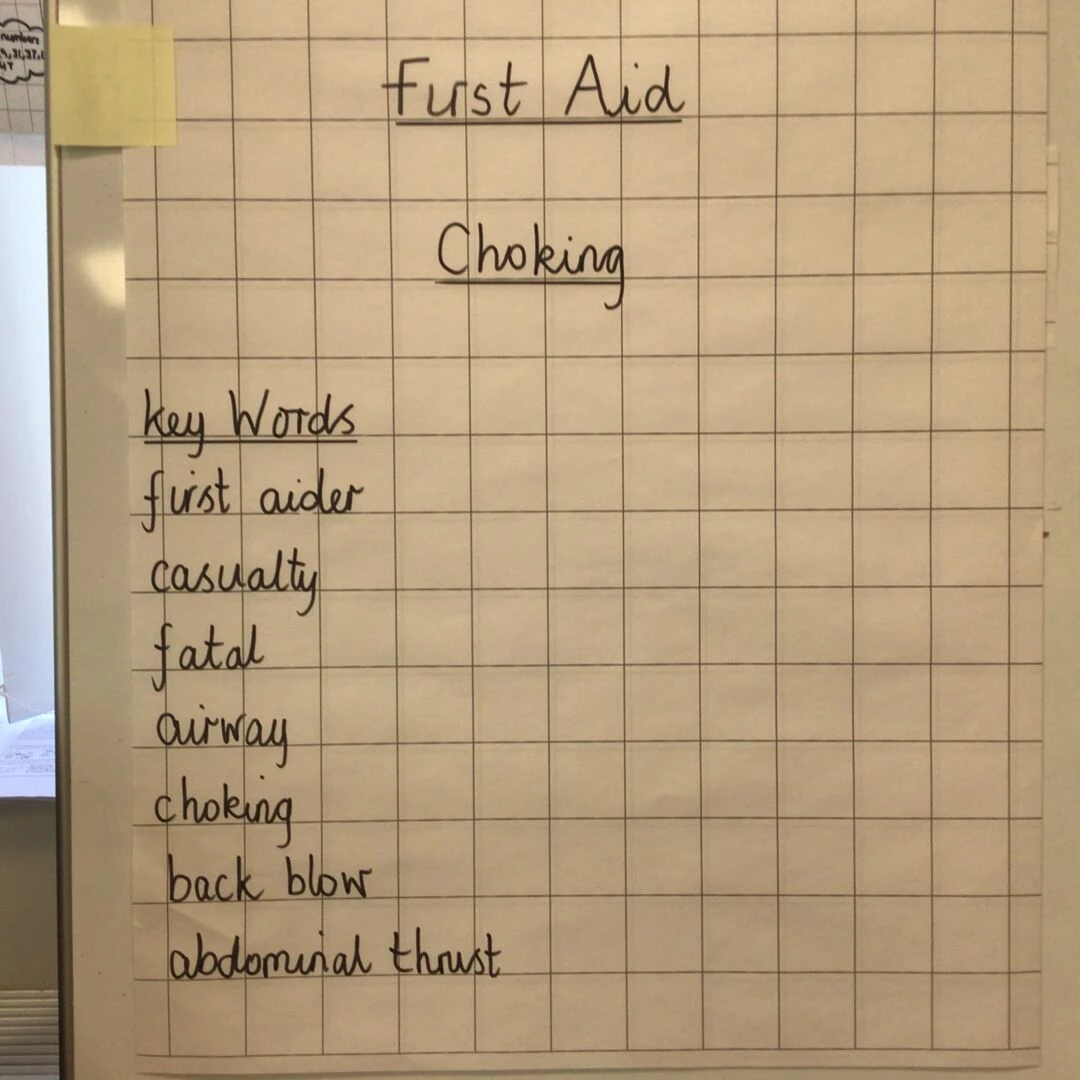 numbers
First Aid
Choking
key Words
first aider
casualty
fatal
airway
choking
back blow
abdominal thrust